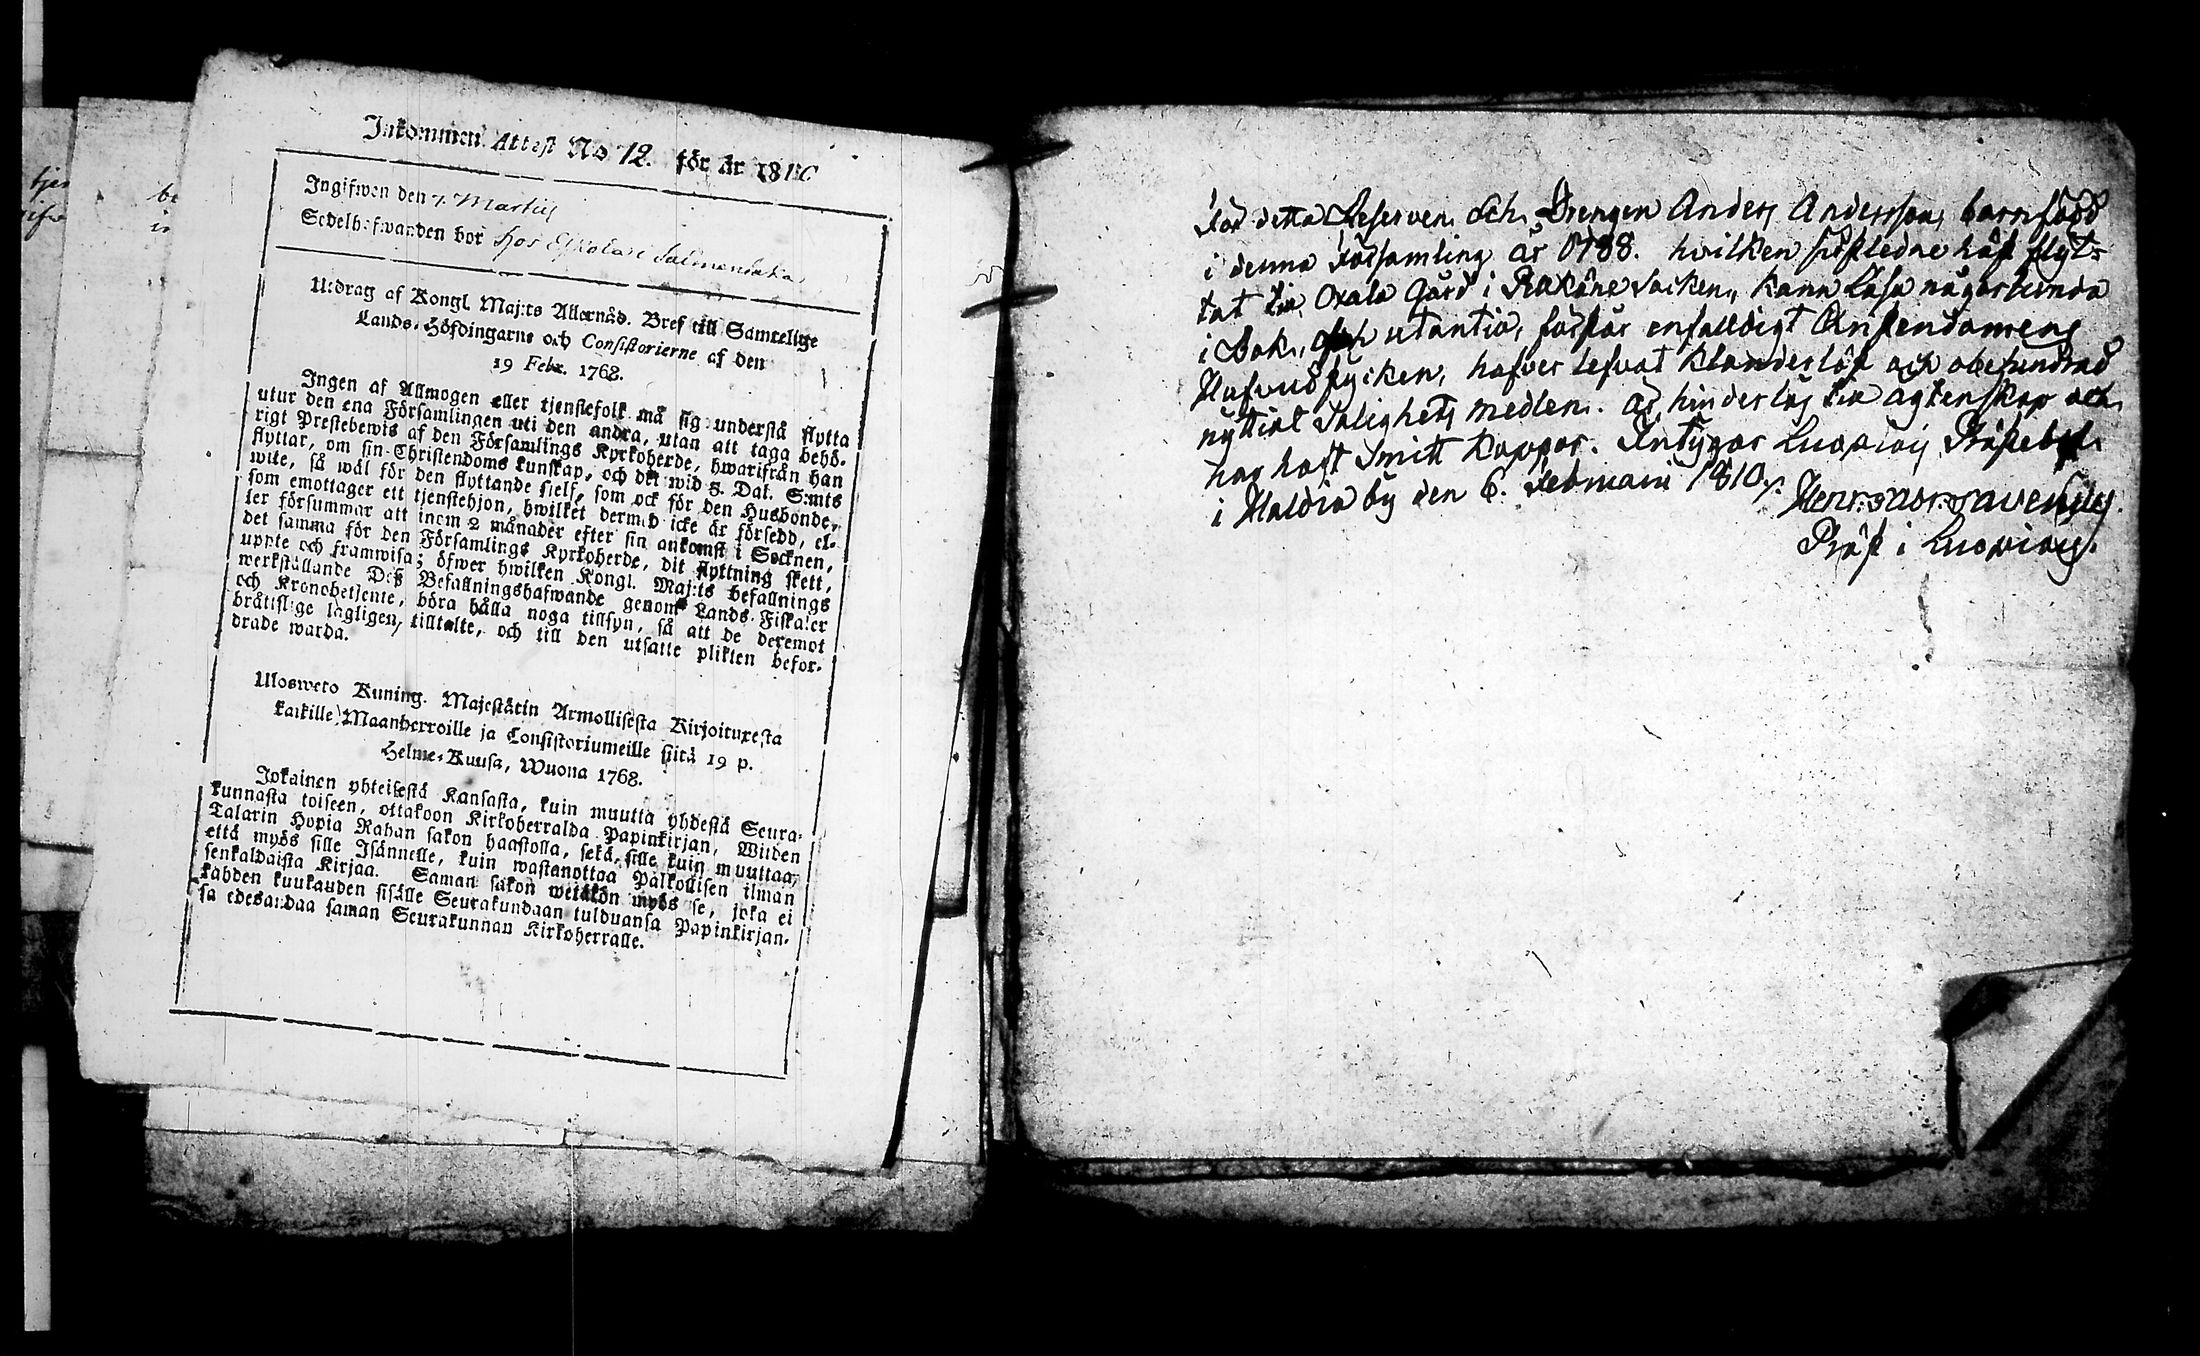 Inkommen Attest No 12. för år 1810
Ingifwen den 7. Martii
Sedelhafwanden bor hos
Utdrag af Kongl. Maj:ts Allernåd. Bref till Samtellige
Lands-Höfdingarne och Consistorierne af den
19 Febr. 1768.
Ingen af Allmogen eller tjenstefolk må sig understå flytta
utur den ena Församlingen uti den andra, utan att taga behö-
rigt Prestebewis af den Församlings Kyrkoherde, hwarifrån han
flyttar, om sin Christendoms kunskap, och det wid 5. Dal. S:mts
wite, så wäl för den flyttande sielf, som ock för den Husbonde,
som emottager ett tjenstehjon, hwilket dermed icke är försedd, el-
ler försummar att inom 2 månader efter sin ankomst i Socknen,
det samma för den Församlings Kyrkoherde, dit flyttning skett,
uppte och framwisa; öfwer hwilken Kongl. Maj:ts befallnings
werkställande Deß Befallningshafwande genom Lands-Fiskaler
och Kronobetjente, böra hålla noga tillsyn, så att de deremot
bråttslige lagligen, tilltalte, och till den utsatte plikten befor-
drade warda.
Ulosweto Kuning. Majestätin Armollisesta Kirjoituxesta
kaikille Maanherroille ja Consistoriumeille siitä 19 p.
Helme-Kuusa, Wuona 1768.
Jokainen yhteisestä Kansasta, kuin muutta yhdestä Seura-
kunnasta toiseen, ottakoon Kirkoherralda Papinkirjan, Wiiden
Talarin Hopia Rahan sakon haastolla, sekä sille kuin muuttaa,
että myös sille Isännelle, kuin wastanottaa Palkollisen ilman
senkaldaista Kirjaa. Saman sakon wetäkön myös se, joka ei
kahden kuukauden sisälle Seurakundaan tulduansa Papinkirjan-
sa edesandaa saman Seurakunnan Kirkoherralle.
För detta Reserven och Drengen Anders Andersson, barnfödd
i denna Församling år 1788. hvilken sistledne höst flyt-
tat till Oxala Gård i Socken, kann Läsa någorlunda
i Bok, och utantill, förstår enfalldigt Christendomens
Hufvudstycken, hafver lefvat klanderlöst och
nyttiat Salighets medlen. är hinderlös till ägtenskap och
har haft Smitt Koppor. Intygar
i Haldia by den 6. Februarii 1810.
Präst i